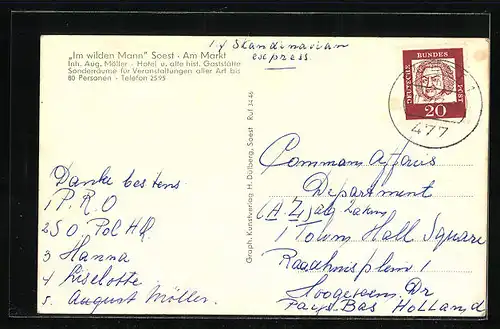 „Im wilden Mann" Soest - Am Markt
Inh. Aug. Möller - Hotel u. alte hist. Gaststätte
Sonderräume für Veranstaltungen aller Art bis
80 Personen - Telefon 2595
Skandinavian
express
DEUTSCHE BUNDES POST
20
1
477
Graph. Kunstverlag H. Dülberg, Soest Ruf 3446
Danke bestens
1 P.R.O
2 S.O. Pol HQ
3 Hanna
4 Liselotte
5. August Möller.
Commans Affairs
Department
(A-Z)
1 Town Hall Square
Raadhuisplein 1
Hoogeveen Dr
Pays. Bas HOLLAND